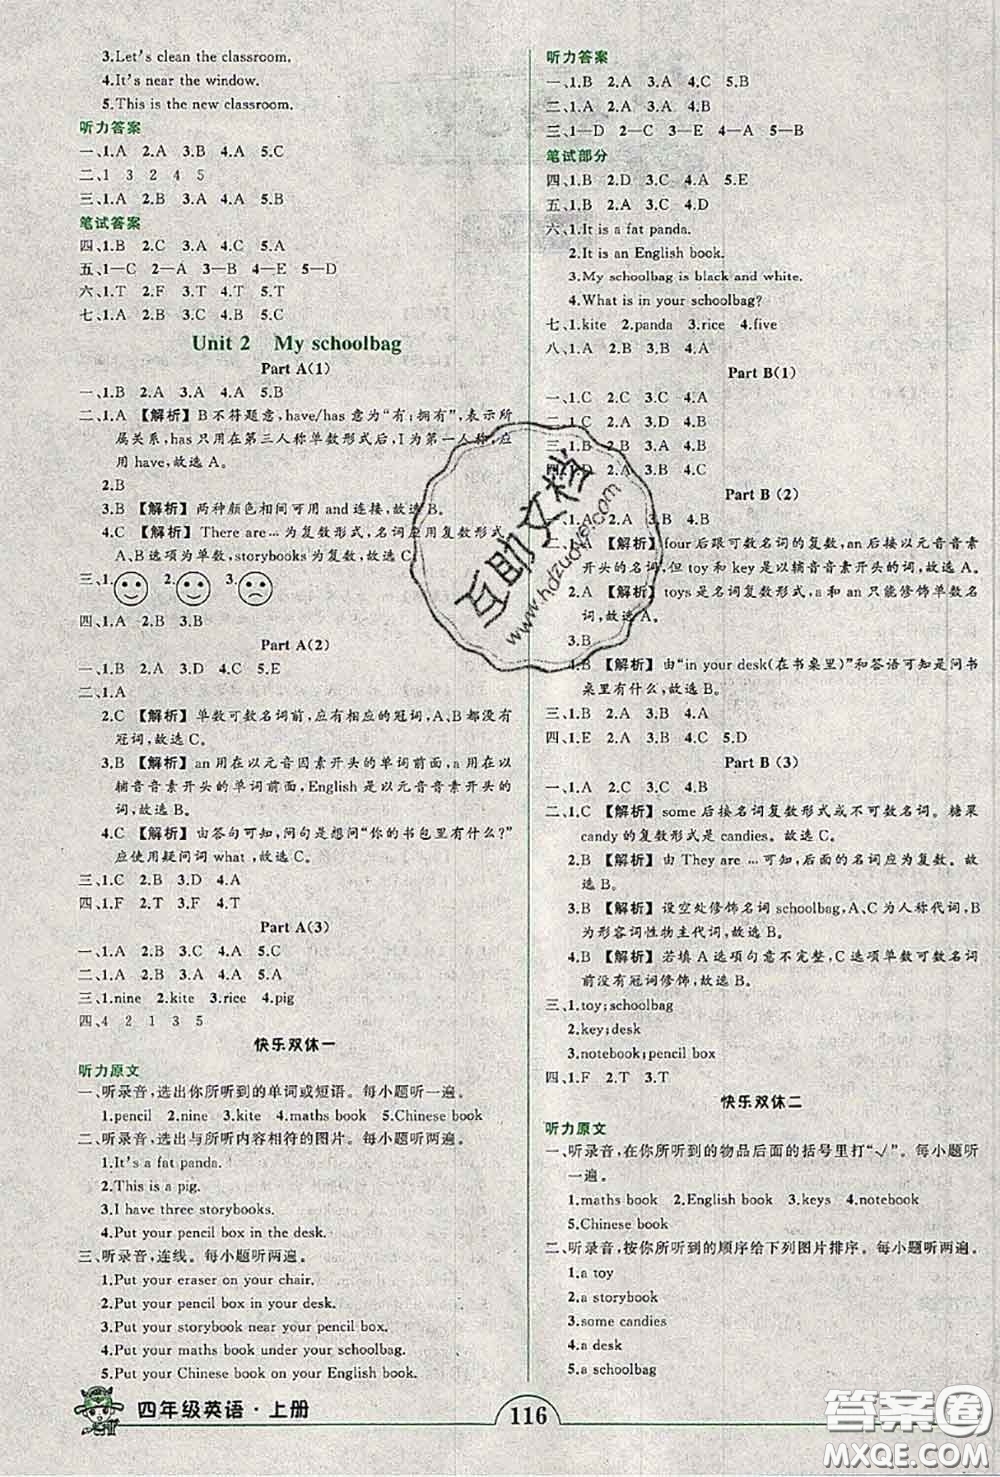 3.Let's clean the classroom.
4.It's near the window.
5.This is the new classroom.
听力答案
一、1.A 2.A 3.B 4.A 5.C
二、1 3 2 4 5
三、1.A 2.B 3.A 4.A 5.B
笔试答案
四、1.B 2.C 3.A 4.C 5.A
五、1—C 2—A 3—B 4—E 5—D
六、1.T 2.F 3.T 4.T 5.T
七、1.A 2.A 3.B 4.B 5.C
Unit 2 My schoolbag
Part A(1)
一、1.B 2.A 3.A 4.A 5.B
二、1.A 【解析】B不符题意,have/has意为“有;拥有”,表示所
属关系,has只用在第三人称单数形式后,I为第一人称,应
用have,故选A。
2.B
3.B 【解析】两种颜色相间可用and连接,故选B。
4.C 【解析】There are…为复数形式,名词应用复数形式,
A、B选项为单数,storybooks为复数,故选C。
三、1. 2. 3.
四、1.A 2.B 3.B
Part A(2)
一、1.B 2.A 3.D 4.C 5.E
二、1.A
2.C 【解析】单数可数名词前,应有相应的冠词,A、B都没有
冠词,故选C。
3.B 【解析】an用在以元音因素开头的单词前面,a用在以
辅音音素开头的单词前面,English是以元音音素开头的
词,故选B。
4.C 【解析】由答句可知,问句是想问“你的书包里有什么?”
应使用疑问词what,故选C。
三、1.C 2.B 3.D 4.A
四、1.F 2.T 3.F 4.T
Part A(3)
一、1.A 2.B 3.C 4.A 5.C
二、1.A 2.C 3.A 4.A 5.A
三、1.nine 2.kite 3.rice 4.pig
四、4 2 1 3 5
快乐双休一
听力原文
一、听录音,选出你所听到的单词或短语。每小题听一遍。
1.pencil 2.nine 3.kite 4.maths book 5.Chinese book
二、听录音,选出与所听内容相符的图片。每小题听两遍。
1.It's a fat panda.
2.This is a pig.
3.I have three storybooks.
4.Put your pencil box in the desk.
三、听录音,连线。每小题听两遍。
1.Put your eraser on your chair.
2.Put your pencil box in your desk.
3.Put your storybook near your pencil box.
4.Put your maths book under your schoolbag.
5.Put your Chinese book on your English book.
听力答案
一、1.B 2.A 3.A 4.C 5.B
二、1.A 2.A 3.A 4.B
三、1—D 2—C 3—E 4—A 5—B
笔试部分
四、1.B 2.D 3.C 4.A 5.E
五、1.B 2.B 3.C 4.A 5.D
六、1.It is a fat panda.
2.It is an English book.
3.My schoolbag is black and white.
4.What is in your schoolbag?
七、1.kite 2.panda 3.rice 4.five
八、1.A 2.B 3.B 4.A
Part B(1)
一、1.C 2.C 3.C 4.A
二、1.C 2.C 3.A 4.A
三、1.B 2.B 3.A 4.B
四、1.D 2.A 3.B 4.C
Part B (2)
一、1.A 2.A 3.B 4.B
二、1.A 【解析】four后跟可数名词的复数,an后接以元音音素
开头的名词,但toy和key是以辅音音素开头的,故选A。
2.A 【解析】toys是名词复数形式,a和an只能修饰单数名
词,故选A。
3.B
4.B 【解析】由“in your desk(在书桌里)”和答语可知是问书
桌里有什么,故选B。
三、1.B 2.A 3.A 4.A
四、1.E 2.A 3.B 4.C 5.D
Part B (3)
一、1.A 2.C 3.C 4.B
二、1.C 【解析】some后接名词复数形式或不可数名词。糖果
candy的复数形式是candies。故选C。
2.B 【解析】由They are…可知,后面的名词应为复数。故
选B。
3.B 【解析】设空处修饰名词schoolbag,A、C为人称代词,B
为形容词性物主代词。故选B。
4.B 【解析】若填A选项句意不完整,C选项单数可数名词
前没有冠词修饰,故选B。
三、1.toy;schoolbag
2.key;desk
3.notebook;pencil box
四、1.F 2.T 3.T
快乐双休二
听力原文
一、听录音,在你所听到的物品后面的括号里打“√”。每小题听
一遍。
1.maths book 2.English book 3.keys 4.notebook
5.Chinese book
二、听录音,按你所听到的顺序给下列图片排序。每小题听两遍。
1.a toy
2.a storybook
3.some candies
4.a desk
5.a schoolbag
四年级英语·上册
116
互助文档
www.hdzuoye.com
答案圈
MXQE.COM